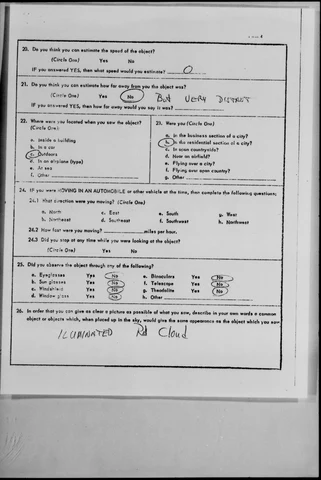 20. Do you think you can estimate the speed of the object?
(Circle One) Yes No
IF you answered YES, then what speed would you estimate? O
21. Do you think you can estimate how far away from you the object was?
(Circle One) Yes No BUT VERY
IF you answered YES, then how far away would you say it was?
22. Where were you located when you saw the object?
(Circle One)
a. Inside a building
b. In a car
c. Outdoors
d. In an airplane (type)
e. At sea
f. Other
23. Were you (Circle One)
a. In the business section of a city?
b. In the residential section of a city?
c. In open countryside?
d. Near an airfield?
e. Flying over a city?
f. Flying over open country?
g. Other
24. IF you were MOVING IN AN AUTOMOBILE or other vehicle at the time, then complete the following questions.
24.1 What direction were you moving? (Circle One)
a. North c. East e. South g. West
b. Northeast d. Southeast f. Southwest h. Northwest
24.2 How fast were you moving? miles per hour.
24.3 Did you stop at any time while you were looking at the object?
(Circle One) Yes No
25. Did you observe the object through any of the following?
a. Eyeglasses Yes No e. Binoculars Yes No
b. Sun glasses Yes No f. Telescope Yes No
c. Windshield Yes No g. Theodolite Yes No
d. Window glass Yes No h. Other
26. In order that you can give as clear a picture as possible of what you saw, describe in your own words a common
object or objects which, when placed up in the sky, would give the same appearance as the object which you saw.
ILUMINATED Rd Cloud